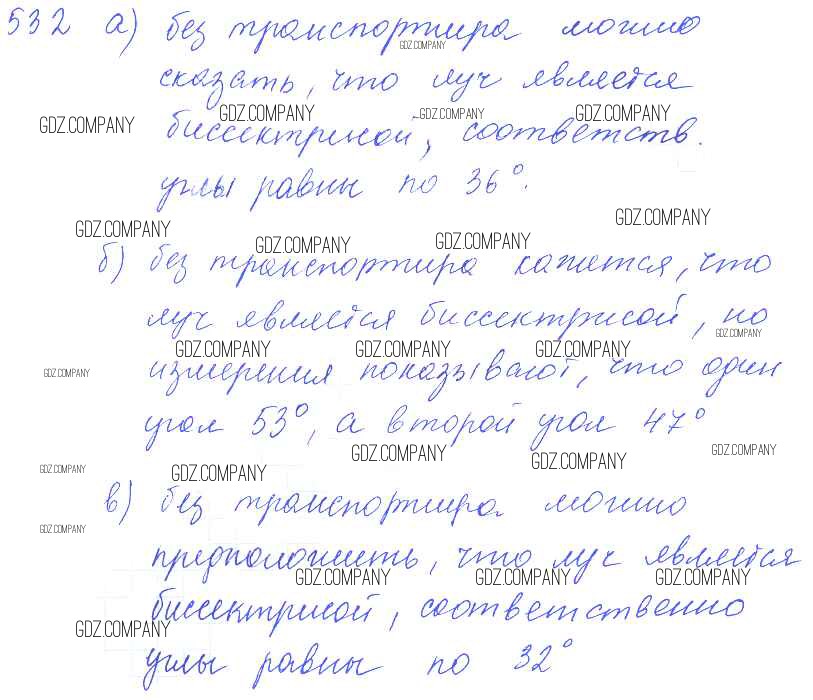 532 а) без транспортира можно
GDZ.COMPANY
сказать, что луч является
GDZ.COMPANY GDZ.COMPANY GDZ.COMPANY GDZ.COMPANY
биссектрисой, соответств.
углы равны по 36°.
GDZ.COMPANY GDZ.COMPANY GDZ.COMPANY GDZ.COMPANY
б) без транспортира кажется, что
луч является биссектрисой, но
GDZ.COMPANY
GDZ.COMPANY GDZ.COMPANY GDZ.COMPANY
GDZ.COMPANY измерения показывают, что один
угол 53°, а второй угол 47°
GDZ.COMPANY GDZ.COMPANY GDZ.COMPANY GDZ.COMPANY GDZ.COMPANY
в) без транспортира можно
GDZ.COMPANY
предположить, что луч является
GDZ.COMPANY GDZ.COMPANY GDZ.COMPANY
биссектрисой, соответственно
GDZ.COMPANY
углы равны по 32°